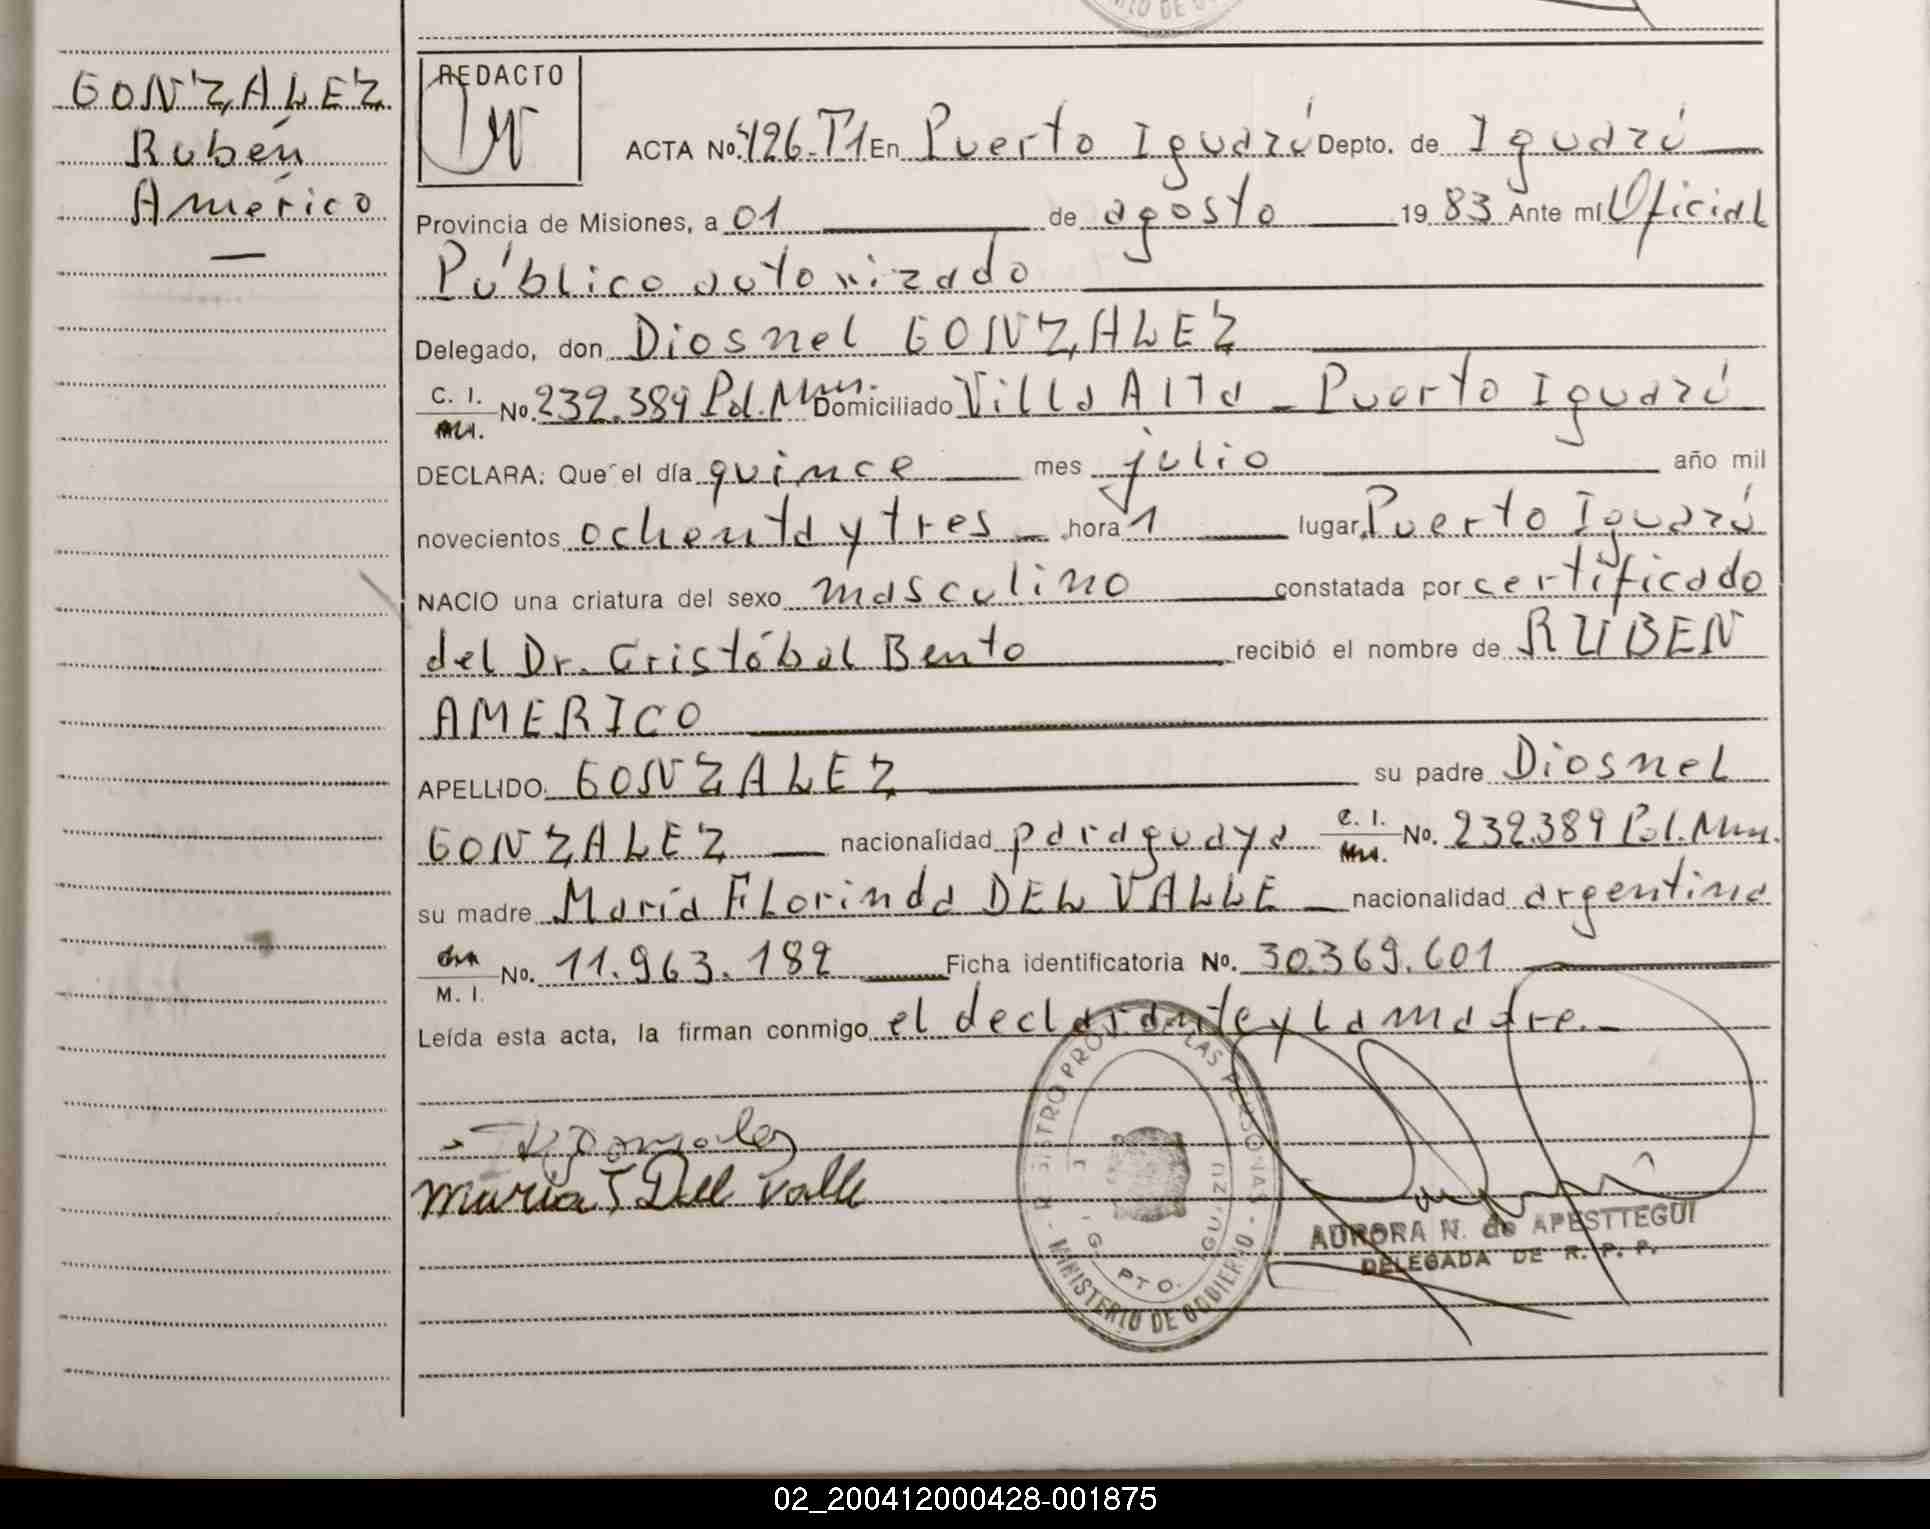 GONZALEZ
Rubén
Américo
—
REDACTO
ACTA No. 426-T1 En Puerto Iguazú Depto. de Iguazú
Provincia de Misiones, a 01 de agosto 1983 Ante mí Oficial
Público autorizado
Delegado, don Diosnel GONZALEZ
C. I. No. 232.389 Pol. Mun. Domiciliado Villa Alta - Puerto Iguazú
DECLARA: Que el día quince mes julio año mil
novecientos ochenta y tres hora 1 lugar Puerto Iguazú
NACIO una criatura del sexo masculino constatada por certificado
del Dr. Cristóbal Bento recibió el nombre de RUBEN
AMERICO
APELLIDO: GONZALEZ su padre Diosnel
GONZALEZ nacionalidad paraguaya C. I. No. 232.389 Pol. Mun.
su madre María Florinda DEL VALLE nacionalidad argentina
M. I. No. 11.963.182 Ficha identificatoria No. 30.369.601
Leída esta acta, la firman conmigo el declarante y la madre.-
Maria F Del Valle
PTO. IGUAZU
MINISTERIO DE GOBIERNO
AURORA N. de APESTTEGUI
DELEGADA DE R. P. P.
02_200412000428-001875